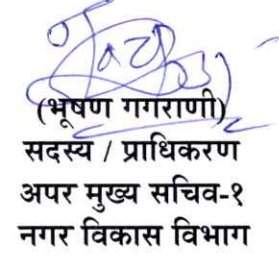 (भूषण गगराणी)
सदस्य / प्राधिकरण
अपर मुख्य सचिव-१
नगर विकास विभाग